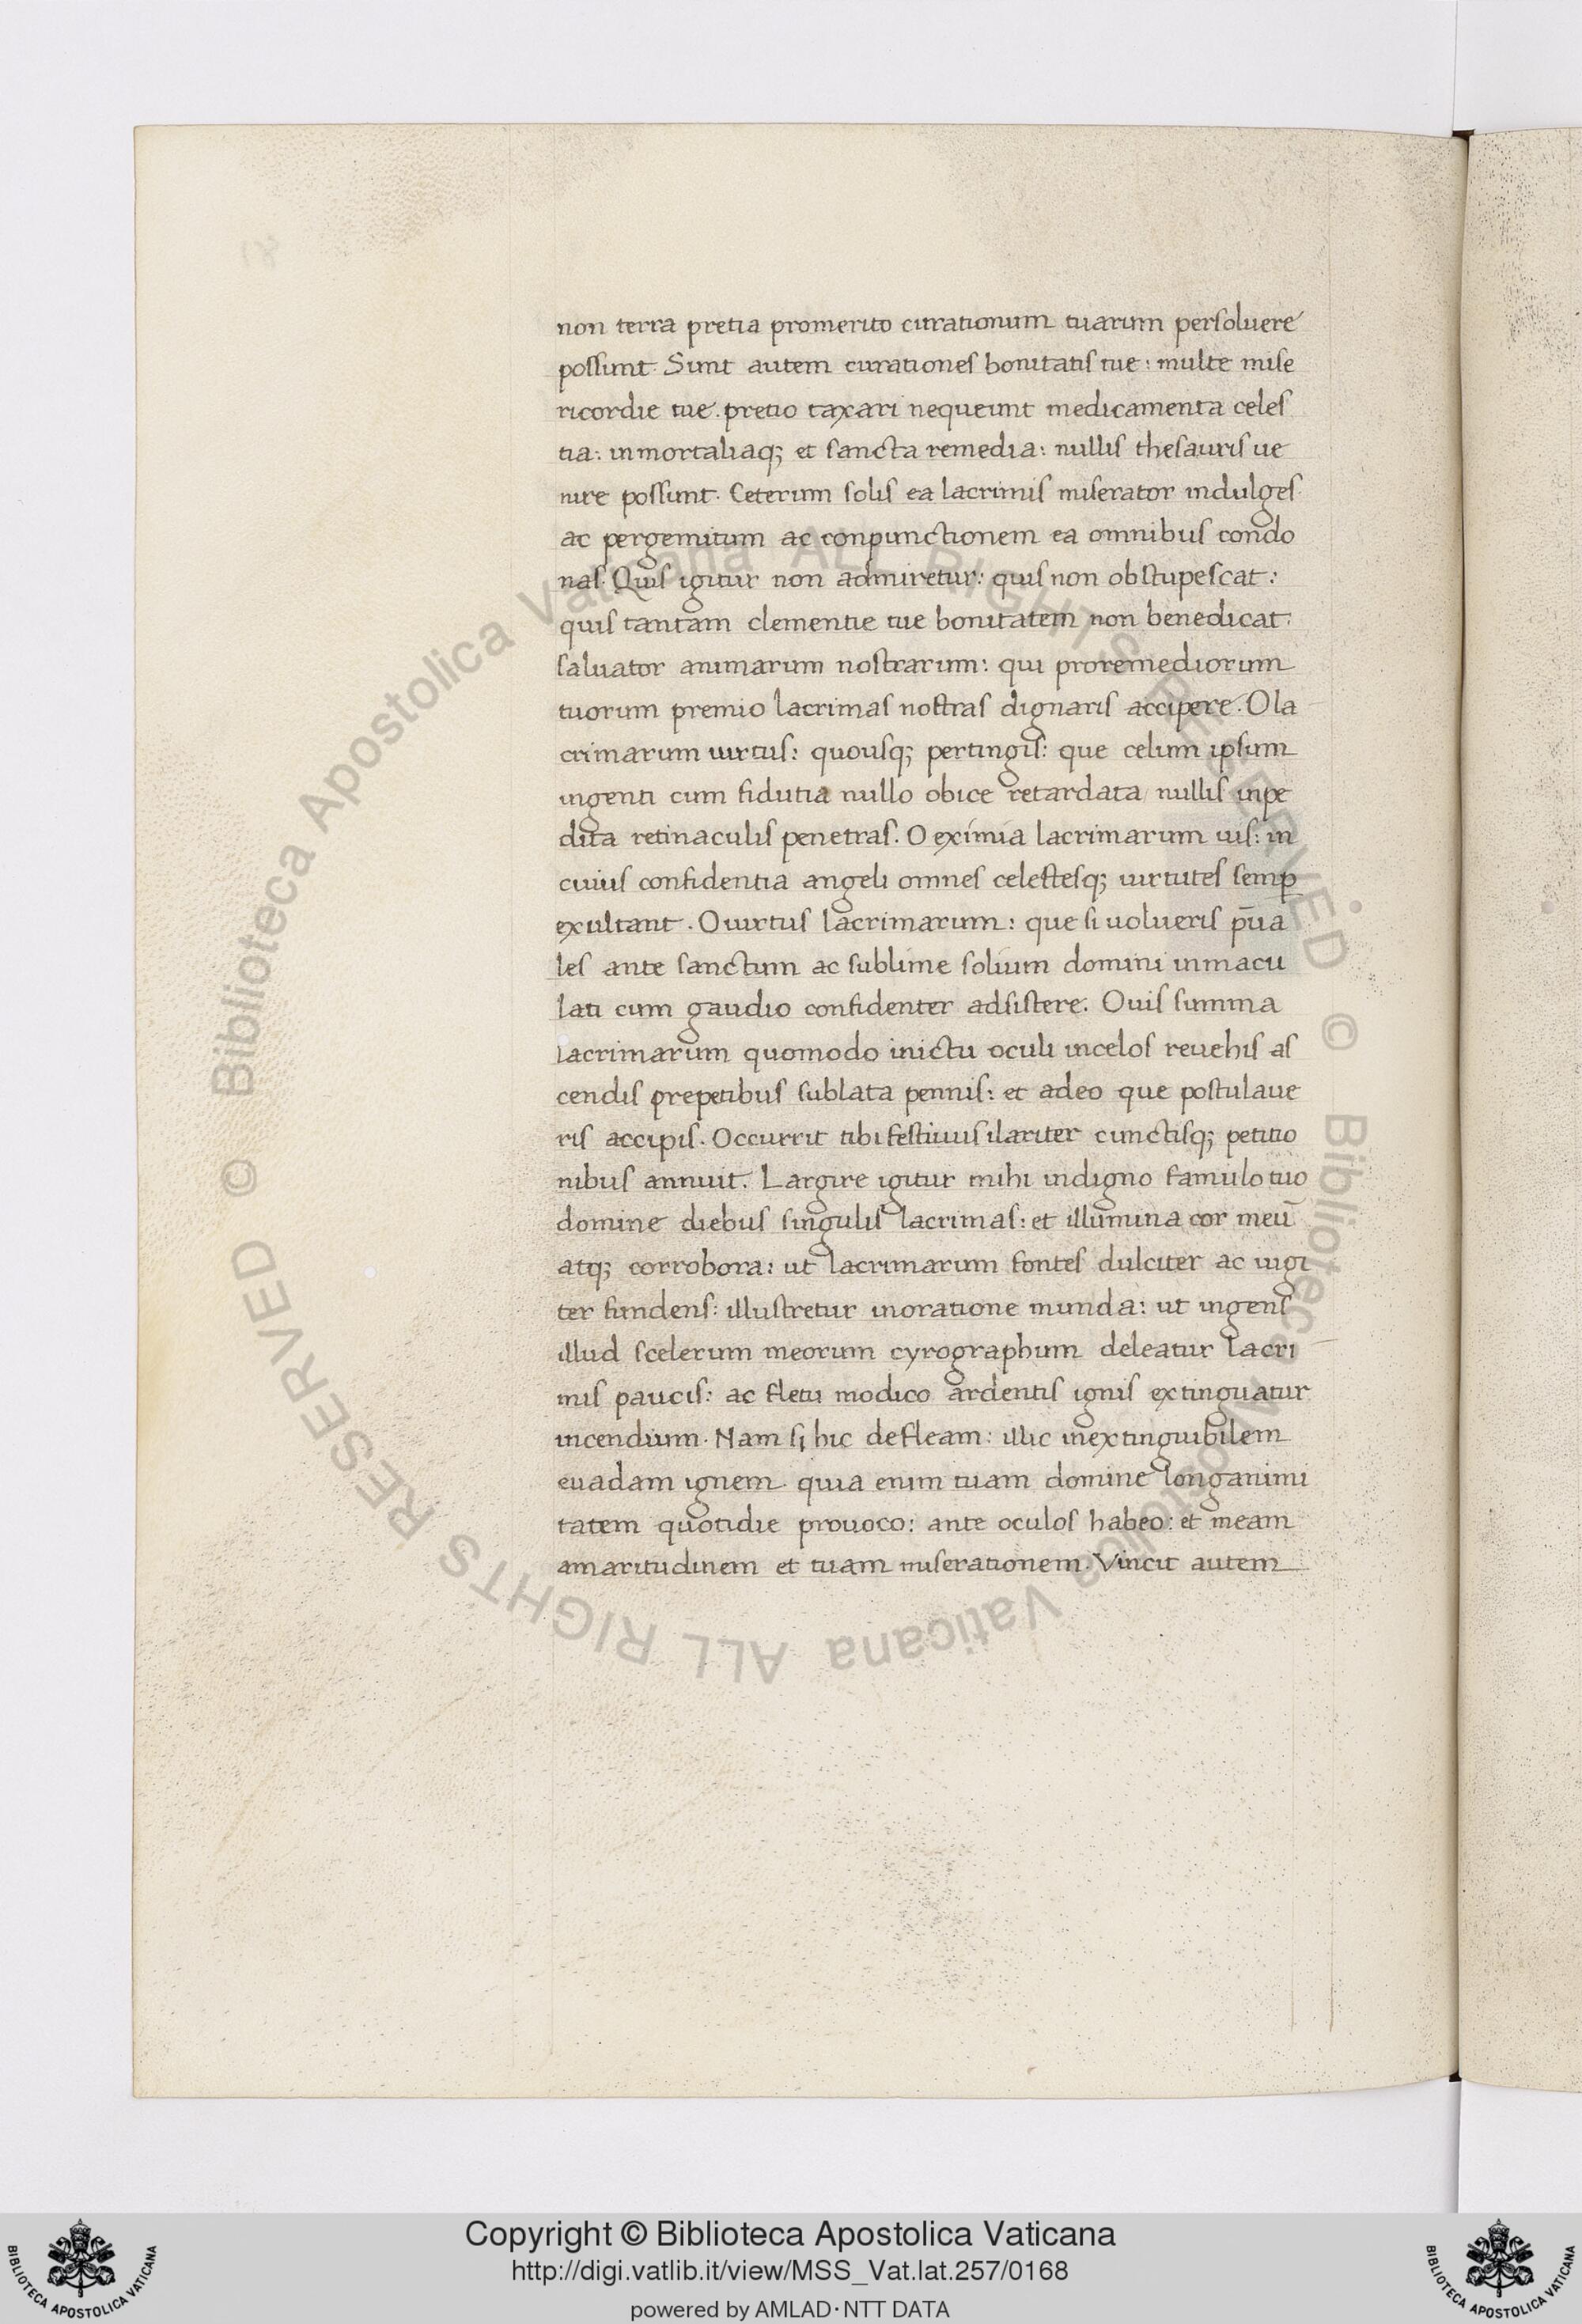 non terra pretia promerito curationum tuarum persoluere
possunt. Sunt autem curationes bonitatis tue: multe mise
ricordie tue. pretio taxari nequeunt medicamenta celes
tia: inmortaliaq; et sancta remedia: nullis thesauris ue
nire possunt. Ceterum solis ea lacrimis miserator indulges
ac pergemitum ac conpunctionem ea omnibus condo
nas. Quis igitur non admiretur: quis non obstupescat:
quis tantam clementie tue bonitatem non benedicat:
saluator animarum nostrarum: qui proremediorum
tuorum premio lacrimas nostras dignaris accipere. O la
crimarum uirtus: quousq; pertingis: que celum ipsum
ingenti cum fidutia nullo obice retardata / nullis inpe
dita retinaculis penetras. O eximia lacrimarum uis: in
cuius confidentia angeli omnes celestesq; uirtutes semp̲
exultant. O uirtus lacrimarum: que si uolueris p̄ua
les ante sanctum ac sublime solium domini inmacu
lati cum gaudio confidenter adsistere. Ouis summa
lacrimarum quomodo inictu oculi incelos reuehis as
cendis prepetibus sublata pennis: et adeo que postulaue
ris accipis. Occurrit tibi festiuus ilariter cunctisq; petitio
nibus annuit. Largire igitur mihi indigno famulo tuo
domine diebus singulis lacrimas: et illumina cor meū
atq; corrobora: ut lacrimarum fontes dulciter ac iugi
ter fundens: illustretur inoratione munda: ut ingens
illud scelerum meorum cyrographum deleatur lacri
mis paucis: ac fletu modico ardentis ignis extinguatur
incendium. Nam si hic defleam: illic inextinguibilem
euadam ignem. quia enim tuam domine longanimi
tatem quotidie prouoco: ante oculos habeo: et meam
amaritudinem et tuam miserationem. Vincit autem
© Biblioteca Apostolica Vaticana ALL RIGHTS RESERVED © Biblioteca Apostolica Vaticana ALL RIGHTS RESERVED
Copyright © Biblioteca Apostolica Vaticana
http://digi.vatlib.it/view/MSS_Vat.lat.257/0168
powered by AMLAD·NTT DATA
BIBLIOTECA APOSTOLICA VATICANA
BIBLIOTECA APOSTOLICA VATICANA